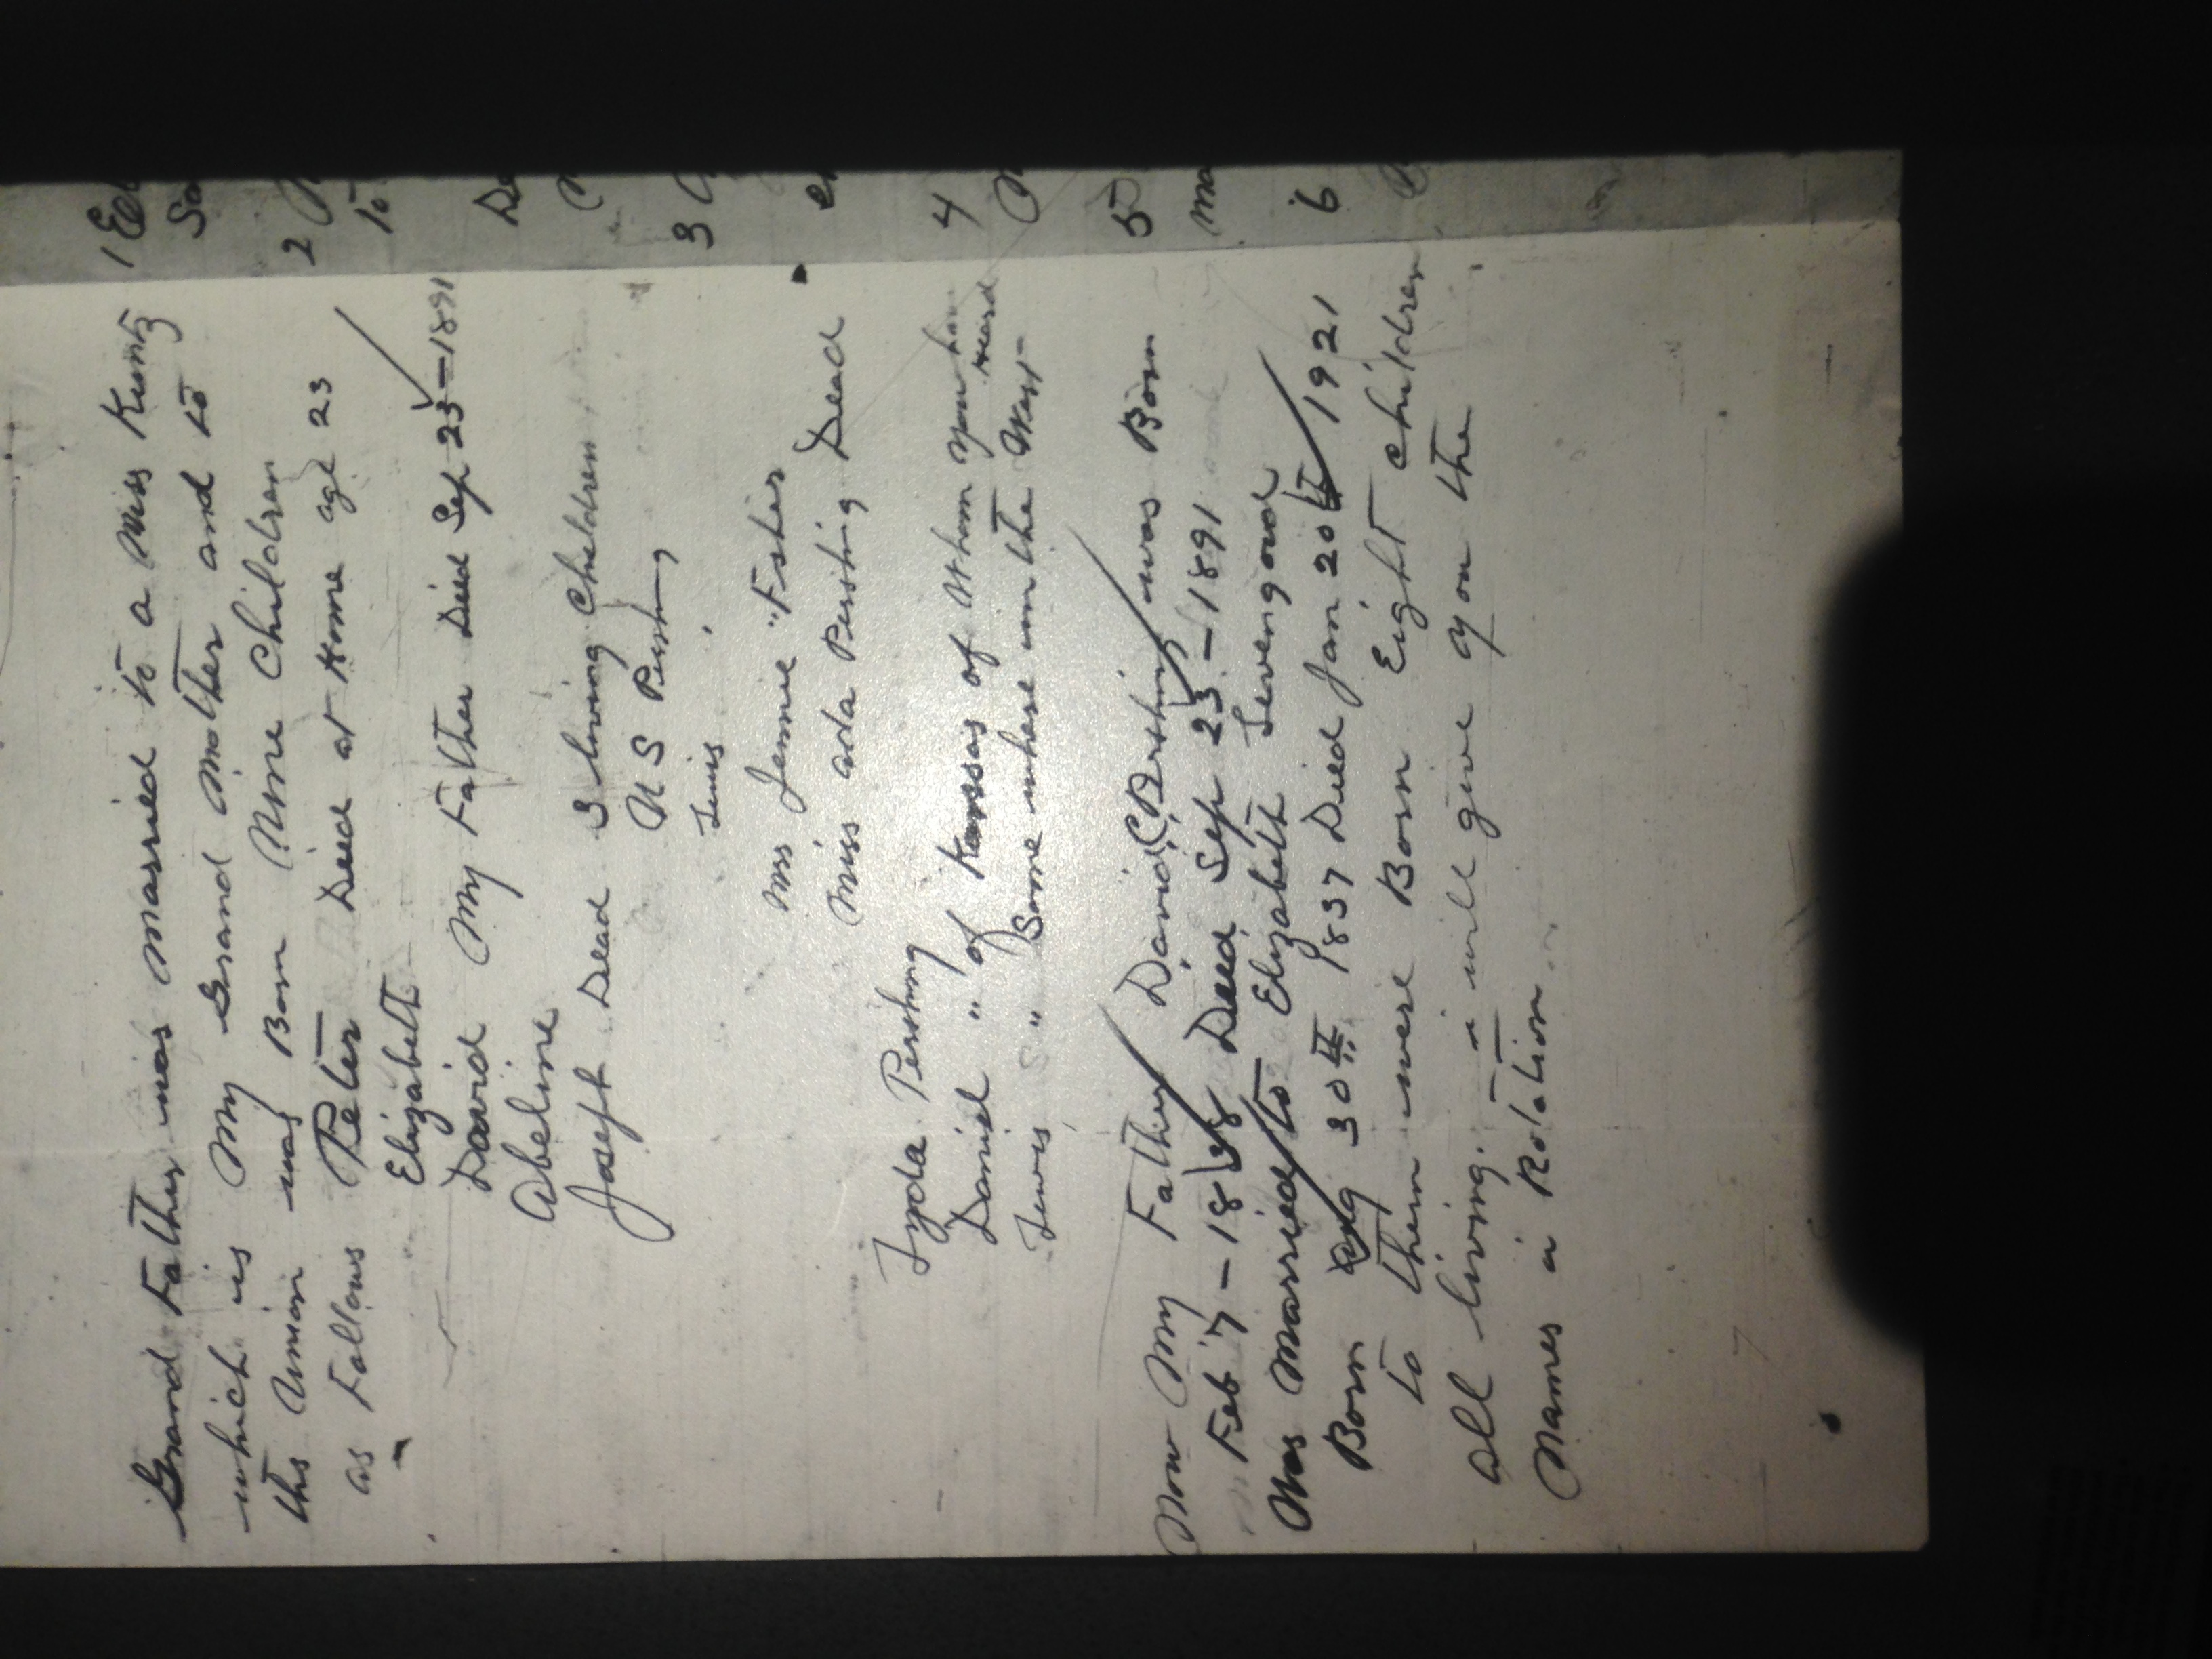 Grand Father was married to a Miss Kuntz
which is My Grand Mother and to
this Union was Born Nine Children
as Follows Peter Died at Home age 23
Elizabeth
David My Father Died Sep 23 – 1891
Abeline
Joseph Dead 3 living Children
N S Pershing
Lewis
Mrs Jennie "Fisher
Miss Ada Pershing Dead
Lyda Pershing
Daniel " of Kansas of Whom you have Heard
Lewis " Some where in the West –
Now My Father David C Pershing was Born
Feb 7 – 1838 Died Sep 23 – 1891
Was Married to Elizabeth Livengood
Born Aug 30th 1837 Died Jan 20th 1921
to them were Born Eight children
all living. i will give you the
Names in Rotation
1
So
2
to
De
3
4
5
ma
6